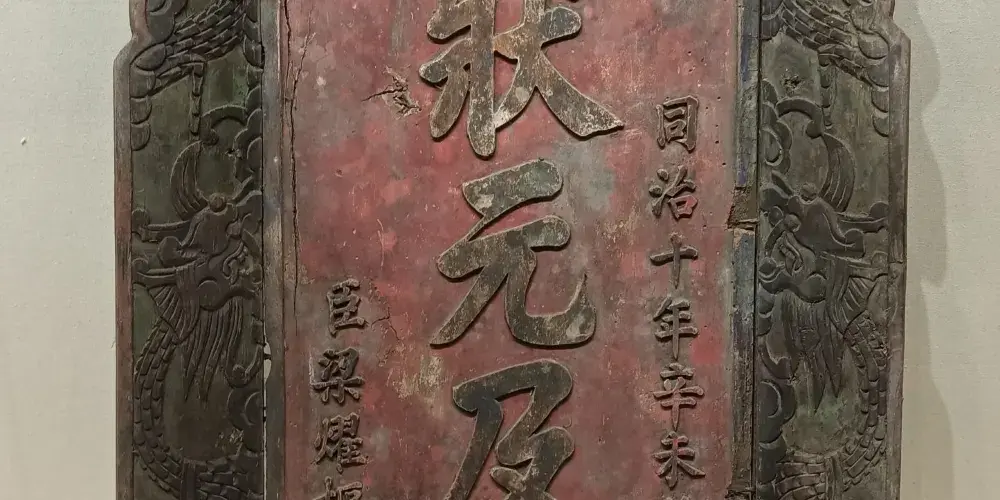 同治十年辛未
狀元及
臣梁燿